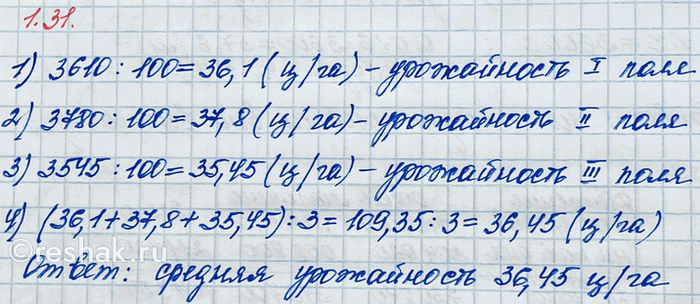 1.31.
1) 3610 : 100 = 36,1 (ц/га) – урожайность I поля
2) 3780 : 100 = 37,8 (ц/га) – урожайность II поля
3) 3545 : 100 = 35,45 (ц/га) – урожайность III поля
4) (36,1+37,8+35,45) : 3 = 109,35 : 3 = 36,45 (ц/га)
Ответ: средняя урожайность 36,45 ц/га
reshak.ru